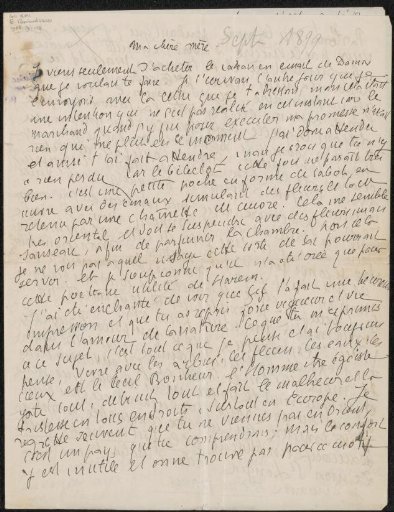 Sept 1899
Ma chère mère
Je viens seulement d'acheter le cadeau en émail de Damas
que je voulais te faire. Je t'écrivais l'autre jour que je
l'envoyais avec la lettre que je t'adressais mais c'était
une intention qui ne s'est pas réalisé en cet instant car le
marchand quand j'y fus pour exécuter ma promesse n'avait
rien qui me plut en ce moment j'ai donc attendu
et ainsi t'ai fait attendre, mais je crois que tu n'y
a rien perdu car le bibelot cette fois me paraît très
bien. C'est une petite poche en forme de sabot, en
cuivre avec des émaux simulant des fleurs, le tout
retenu par une chaînette de cuivre. Cela me semble
très oriental et doit se suspendre avec des fleurs
afin de parfumer la chambre. hors cela
je ne vois pas à quel usage cette sorte de sac pourrait
servir et je soupçonne qu'il n'a été créé que pour
cette poétique utilité de Harem.
J'ai été enchanté de voir que Gif t'a fait une heureuse
impression et que tu as repris joie vigueur et vie
dans l'amour de la nature. Ce que tu m'exprimes
à ce sujet, c'est tout ce que je pense et ai toujours
pensé. Vivre avec les arbres, les fleurs, les eaux, les
cieux est le seul Bonheur. L'homme être égoïste
gâte tout, détruit tout et fait le malheur et la
tristesse en tous endroits, surtout en Europe. Je
regrette souvent que tu ne viennes pas en Orient,
c'est un pays que tu comprendrais; mais le confort
y est inutile et on ne trouve pas pour ce motif